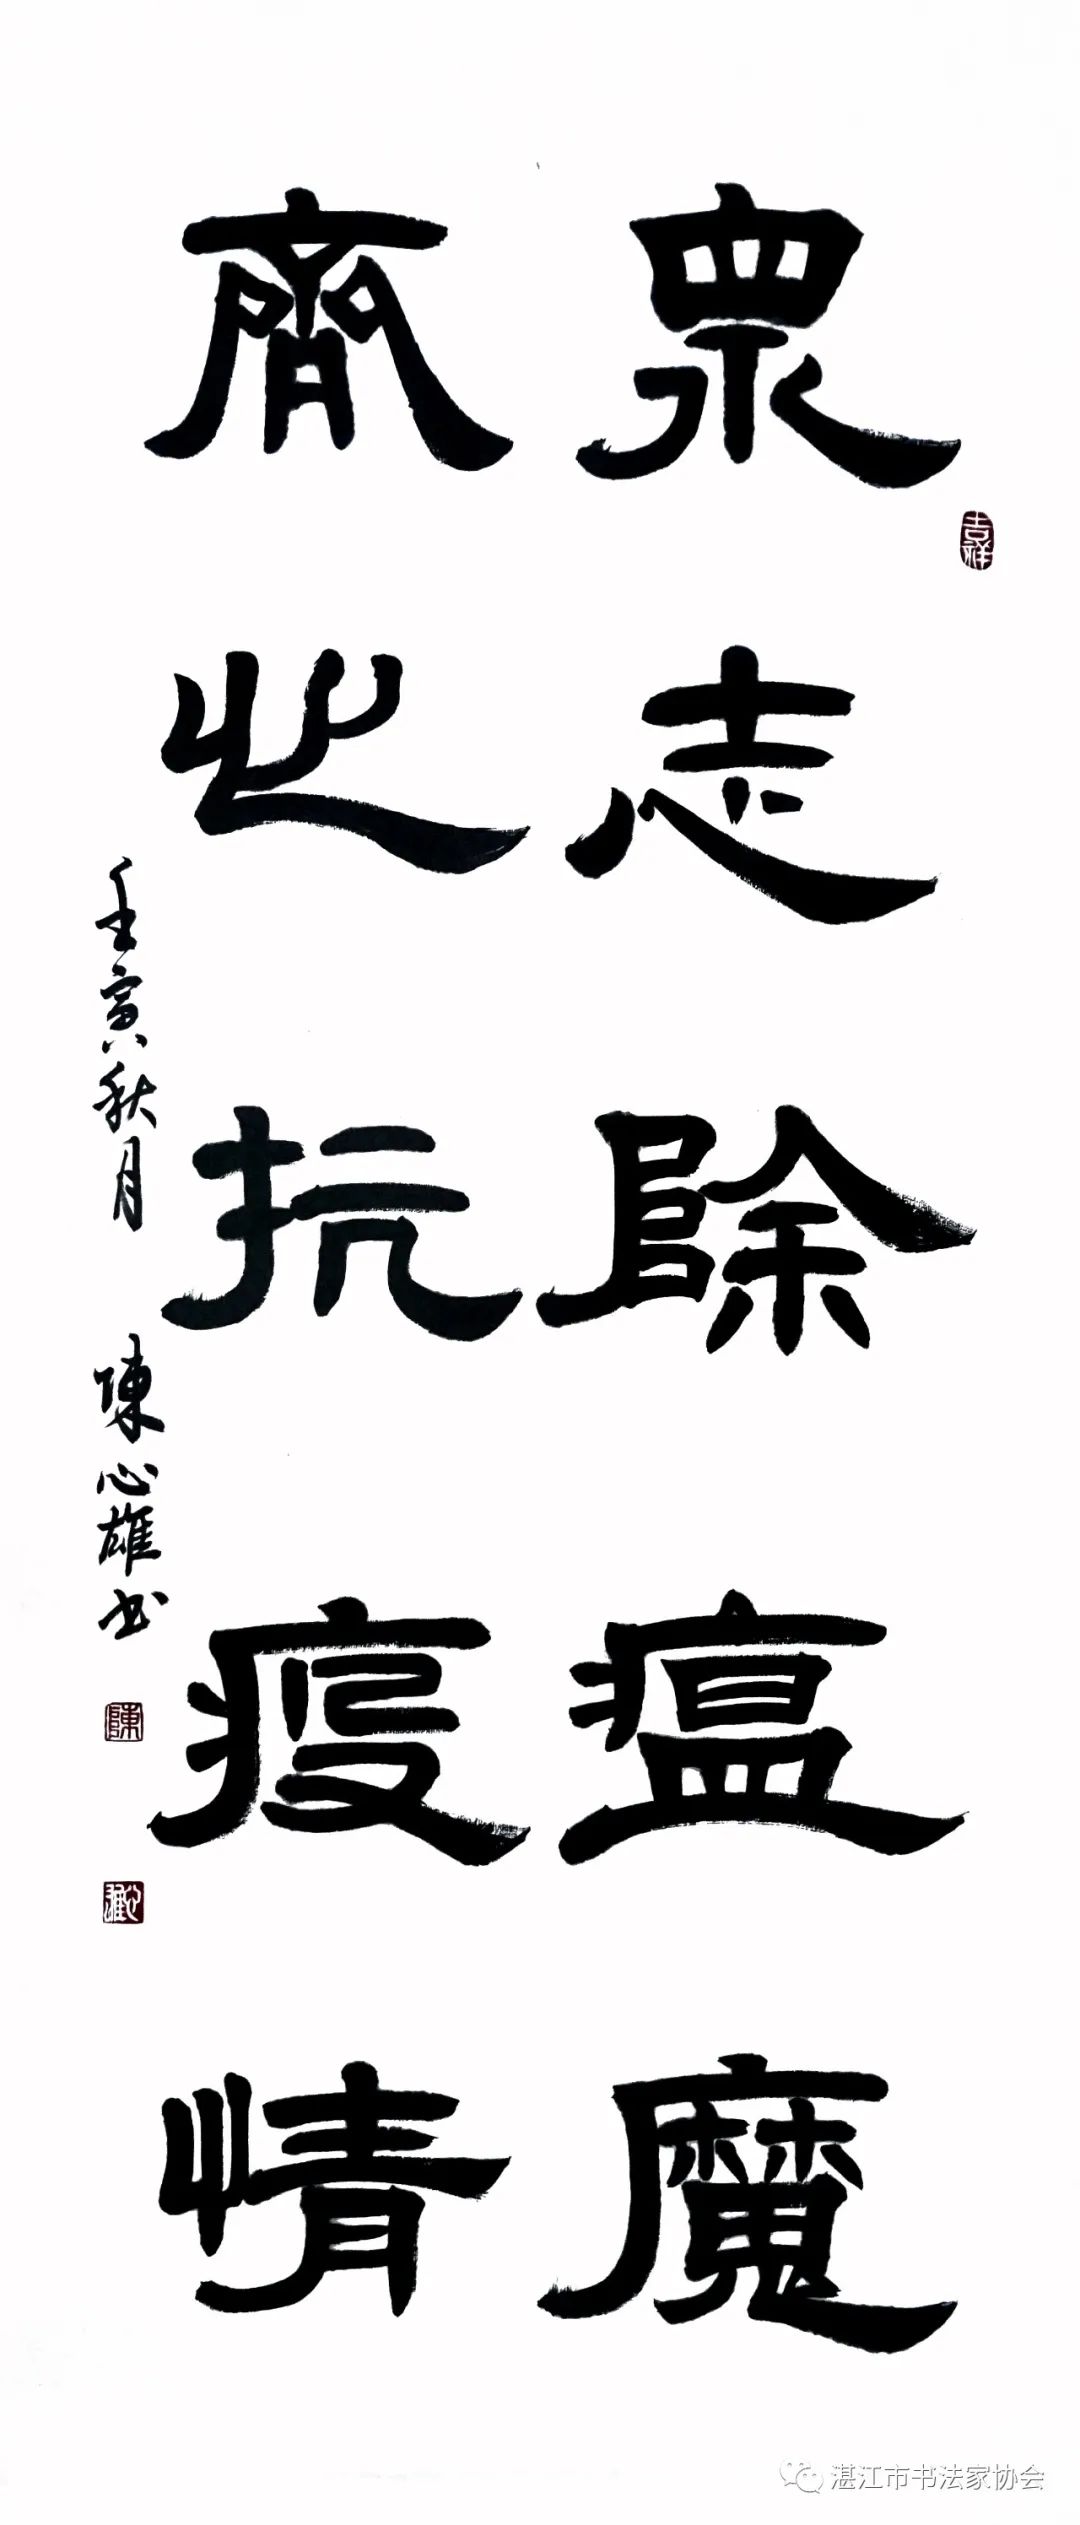 眾志除瘟魔
吉祥
齊心抗疫情
壬寅秋月 陳心雄书
陳
心雄
湛江市书法家协会